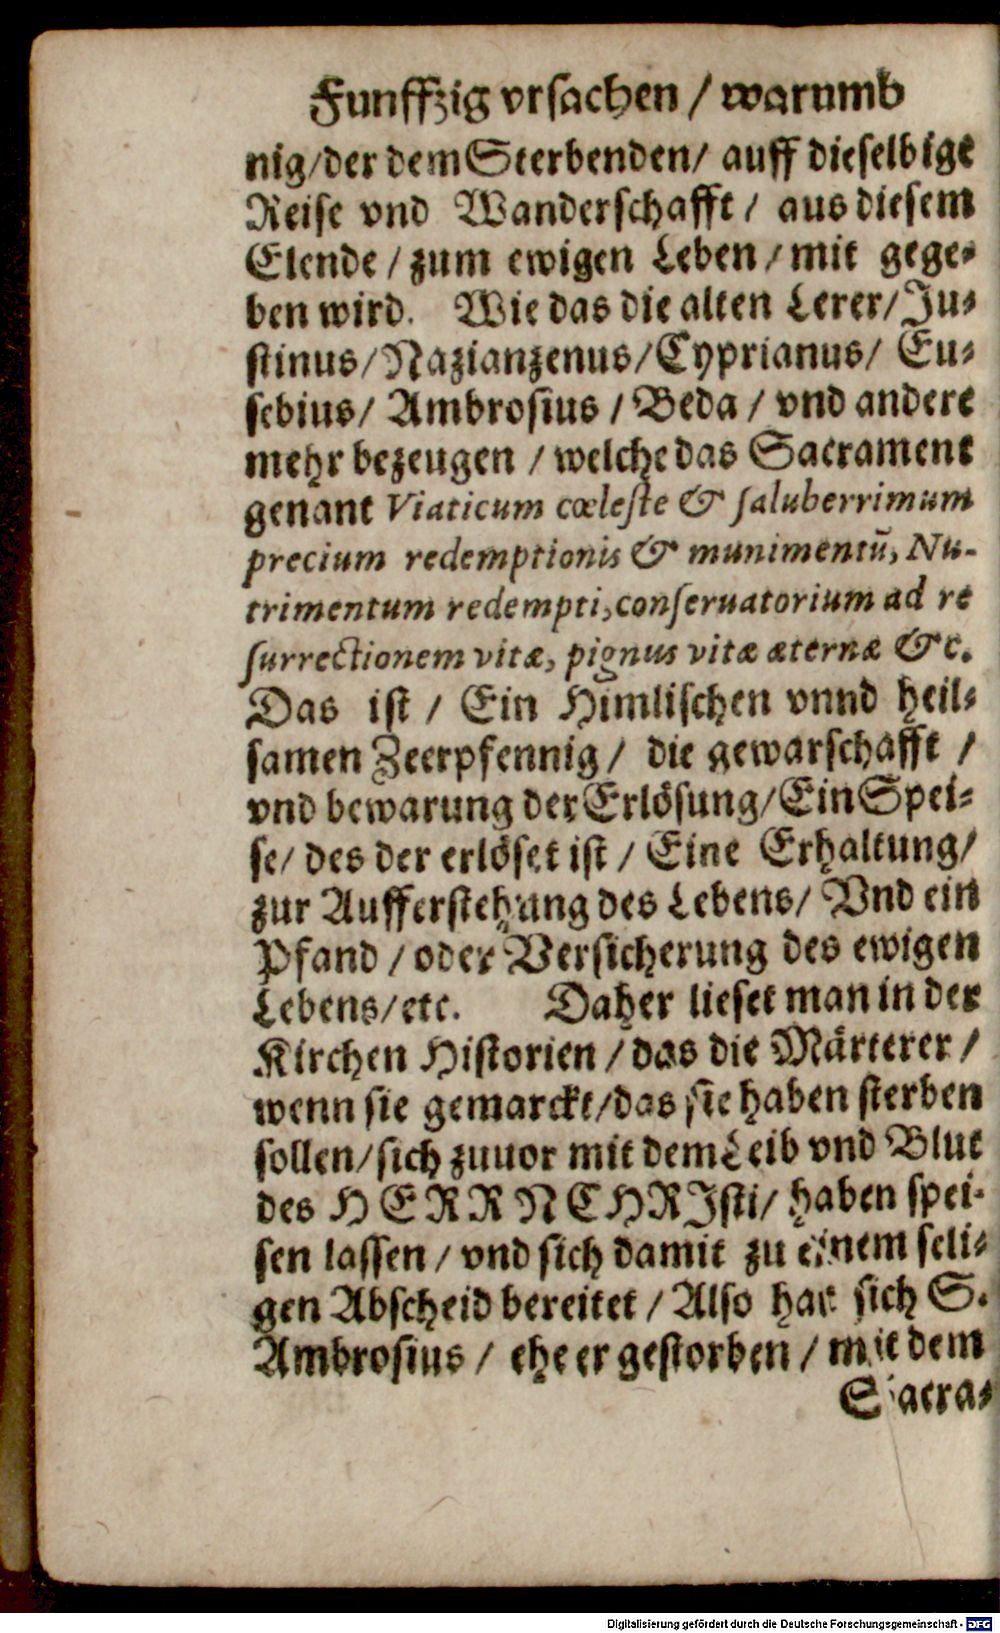 Funffzig vrsachen / warumb
nig/der dem Sterbenden/ auff dieselbige
Reise vnd Wanderschafft / aus diesem
Elende / zum ewigen Leben / mit gege-
ben wird. Wie das die alten Lerer/ Ju-
stinus/Nazianzenus/Cyprianus/ Eu-
sebius/ Ambrosius / Beda / vnd andere
mehr bezeugen / welche das Sacrament
genant Viaticum cœleste & saluberrimum
precium redemptionis & munimentũ, Nu-
trimentum redempti,conseruatorium ad re
surrectionem vitæ, pignus vitæ æternæ &c.
Das ist / Ein Himlischen vnnd heil-
samen Zeerpfennig / die gewarschafft /
vnd bewarung der Erlösung/Ein Spei-
se/ des der erlöset ist / Eine Erhaltung/
zur Aufferstehung des Lebens/ Vnd ein
Pfand / oder Versicherung des ewigen
Lebens/etc. Daher lieset man in der
Kirchen Historien / das die Märterer /
wenn sie gemarckt/das sie haben sterben
sollen/sich zuuor mit dem Leib vnd Blut
des HERRN CHRJsti/ haben spei-
sen lassen / vnd sich damit zu einem seli-
gen Abscheid bereitet / Also hat sich S.
Ambrosius / ehe er gestorben / mit dem
Sacra-
Digitalisierung gefördert durch die Deutsche Forschungsgemeinschaft - DFG